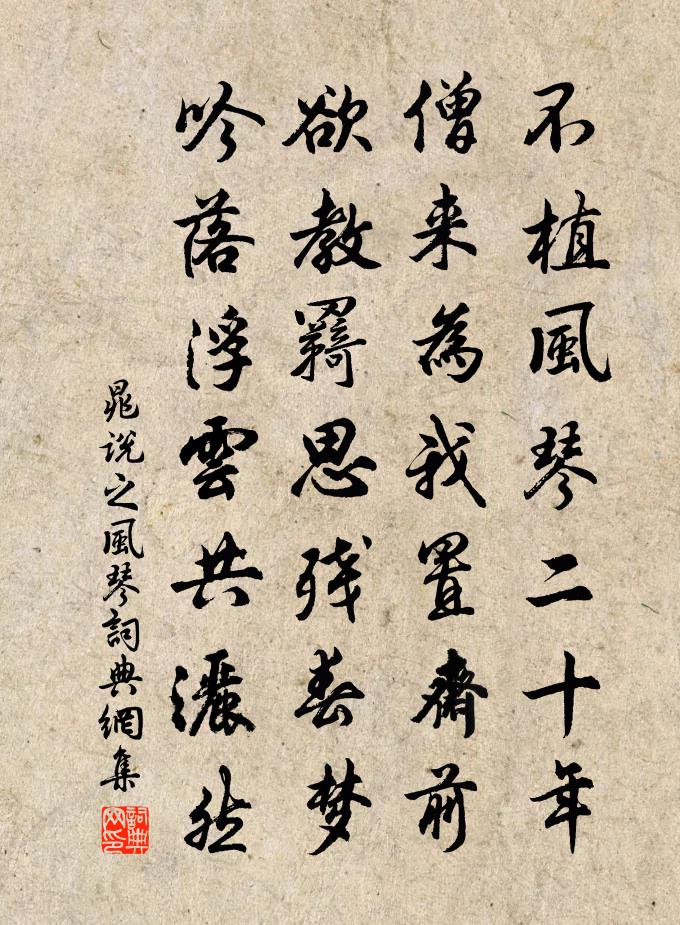 不植風琴二十年
僧来為我置齋前
欲教羇思残春梦
吟落浮雲共灑然
晁说之風琴詞典網集
詞典網印